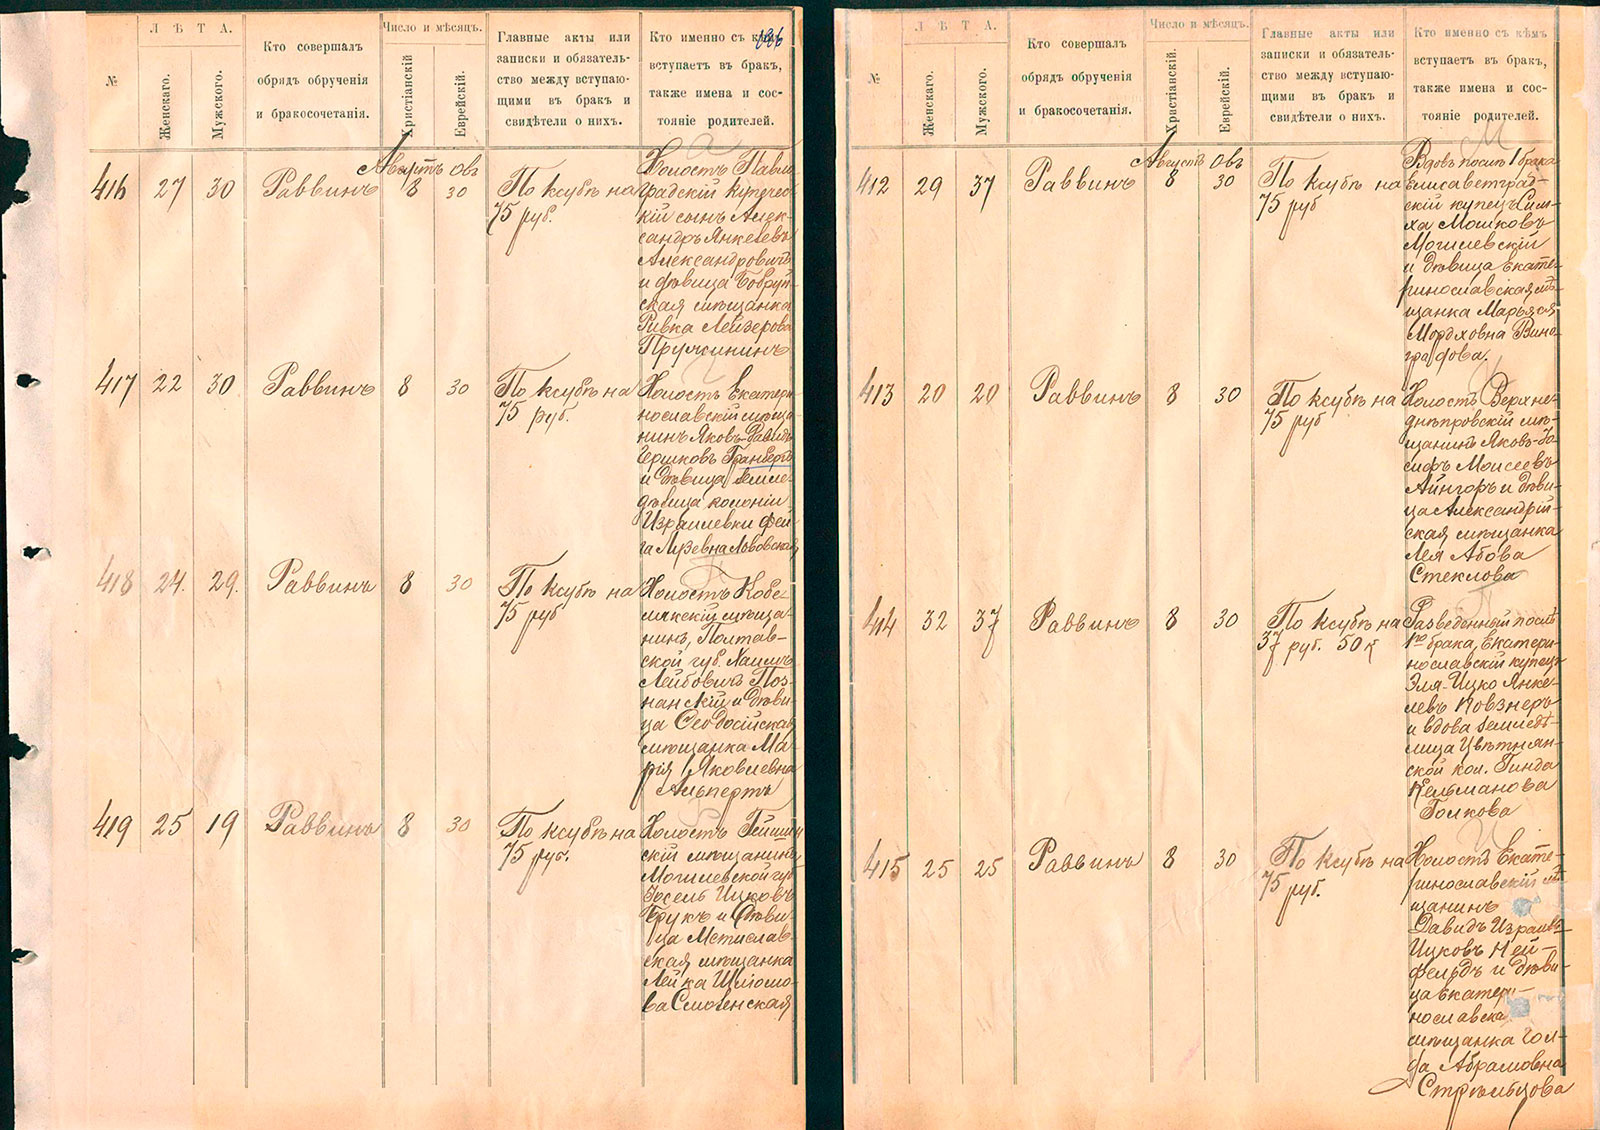 Л Ѣ Т А.
Число и мѣсяцъ.
№
Женскаго.
Мужского.
Кто совершалъ
обрядъ обрученія
и бракосочетанія.
Христіанскій
Еврейскій.
Главные акты или
записки и обязатель-
ство между вступаю-
щими въ бракъ и
свидѣтели о нихъ.
Кто именно съ кѣмъ
вступаетъ въ бракъ,
также имена и сос-
тояніе родителей.
Августъ Овъ
416 27 30 Раввинъ 8 30 По ксубѣ на
75 руб.
Холостъ Павло-
градскій купечес-
кій сынъ Алек-
сандръ Янкелевъ
Александровичъ
и дѣвица Бобруй-
ская мѣщанка
Ривка Лейзерова
Пружининъ
417 22 30 Раввинъ 8 30 По ксубѣ на
75 руб.
Холостъ Екатери-
нославскій мѣща-
нинъ Яковъ-Давидъ
Гершковъ Гранбергъ
и дѣвица Земле-
дѣлица колоніи
Израилевки Фей-
га Львовская
418 24. 29. Раввинъ 8 30 По ксубѣ на
75 руб
Холостъ Кобе-
лякскій мѣща-
нинъ, Полтав-
ской губ. Хаимъ
Лейбовичъ Поз-
нанскій и дѣви-
ца Ѳеодосійская
мѣщанка Ма-
рія Яковлевна
Альпертъ
419 25 19 Раввинъ 8 30 По ксубѣ на
75 руб.
Холостъ
скій мѣщанинъ
Могилевской губ
Іосель Ицковъ
Брукъ и дѣви-
ца Мстислав-
ская мѣщанка
Лейка Шліомо-
ва Смоленская
Л Ѣ Т А.
Число и мѣсяцъ.
№
Женскаго.
Мужского.
Кто совершалъ
обрядъ обрученія
и бракосочетанія.
Христіанскій
Еврейскій.
Главные акты или
записки и обязатель-
ство между вступаю-
щими въ бракъ и
свидѣтели о нихъ.
Кто именно съ кѣмъ
вступаетъ въ бракъ,
также имена и сос-
тояніе родителей.
Августъ Овъ
412 29 37 Раввинъ 8 30 По ксубѣ на
75 руб
Вдовъ послѣ 1 брака
Елисаветград-
скій купецъ Сим-
ха Мошковъ
Могилевскій
и дѣвица Екате-
ринославская мѣ-
щанка Марьяся
Мордховна Вино-
градова.
413 20 20 Раввинъ 8 30 По ксубѣ на
75 руб
Холостъ Верхне-
днѣпровскій мѣ-
щанинъ Яковъ-Іо-
сифъ Моисеевъ
Айнгоръ и дѣви-
ца Александрій-
ская мѣщанка
Лея Абова
Стеклова
414 32 37 Раввинъ 8 30 По ксубѣ на
37 руб. 50 к
Разведенный послѣ
1го брака, Екатери-
нославскій купецъ
Эля-Ицко Янке-
левъ Ковзнеръ
и вдова Земледѣ-
лица Цвѣтнян-
ской кол. Гинда
Кельманова
Голкова
415 25 25 Раввинъ 8 30 По ксубѣ на
75 руб.
Холостъ Екате-
ринославскій мѣ-
щанинъ
Давидъ Израиль-
Ицковъ Ней-
фельдъ и дѣви-
ца Екатери-
нославска
мѣщанка Гол-
да Абрамовна
Стрѣльцова